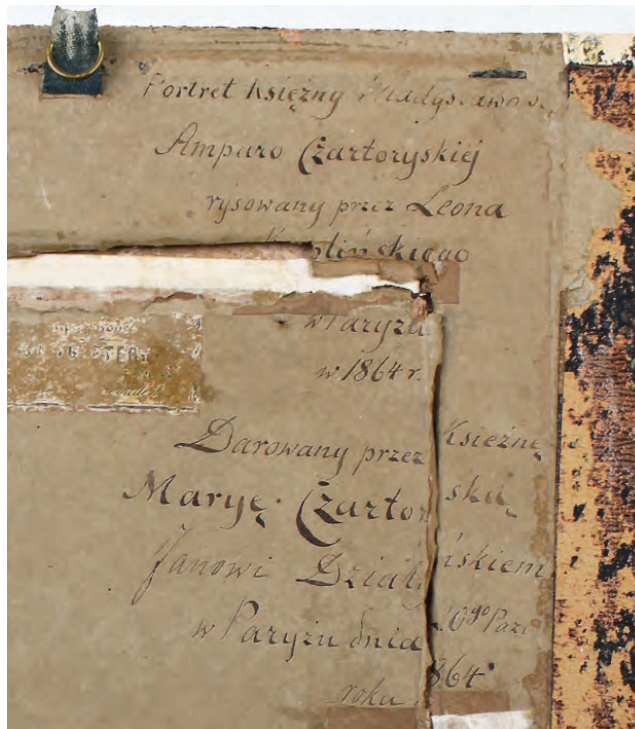 Portret Księżny Władysławowej
Amparo Czartoryskiej
rysowany przez Leona
w Paryżu
w 1864 r.
Darowany przez Księżnę
Maryę Czartor ską
Janowi Działy ńskiem
w Paryżu dnia 10go Paź
roku 864